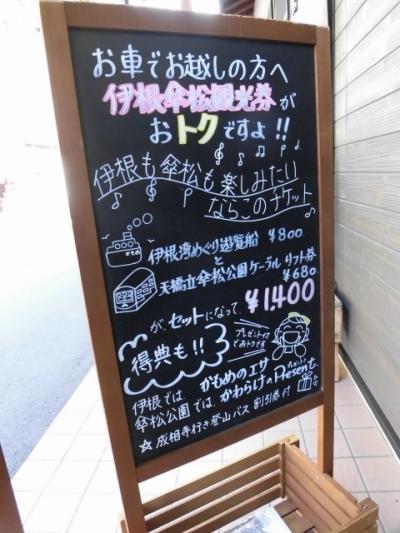 お車でお越しの方へ
伊根傘松観光券が
おトクですよ!!
伊根も傘松も楽しみたい
ならこのチケット
伊根湾めぐり遊覧船 ¥800.
と
天橋立傘松公園ケーブル リフト券
¥680.
が、セットになって、¥1,400
得典も!!
プレゼント付
でおトクです
伊根では かもめのエサ
傘松公園では、かわらけ
プレゼント
Present.
☆成相寺行き登山バス 割引券付